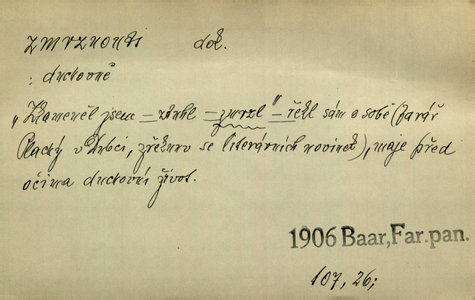 zmrznouti dok.
: duchovně
„Zkameněl jsem – ztuhl – zmrzl" – řekl sám o sobě (farář
v, zřeknuv se literárních novinek), maje před
očima duchovní život.
1906 Baar, Far. pan.
107, 26;